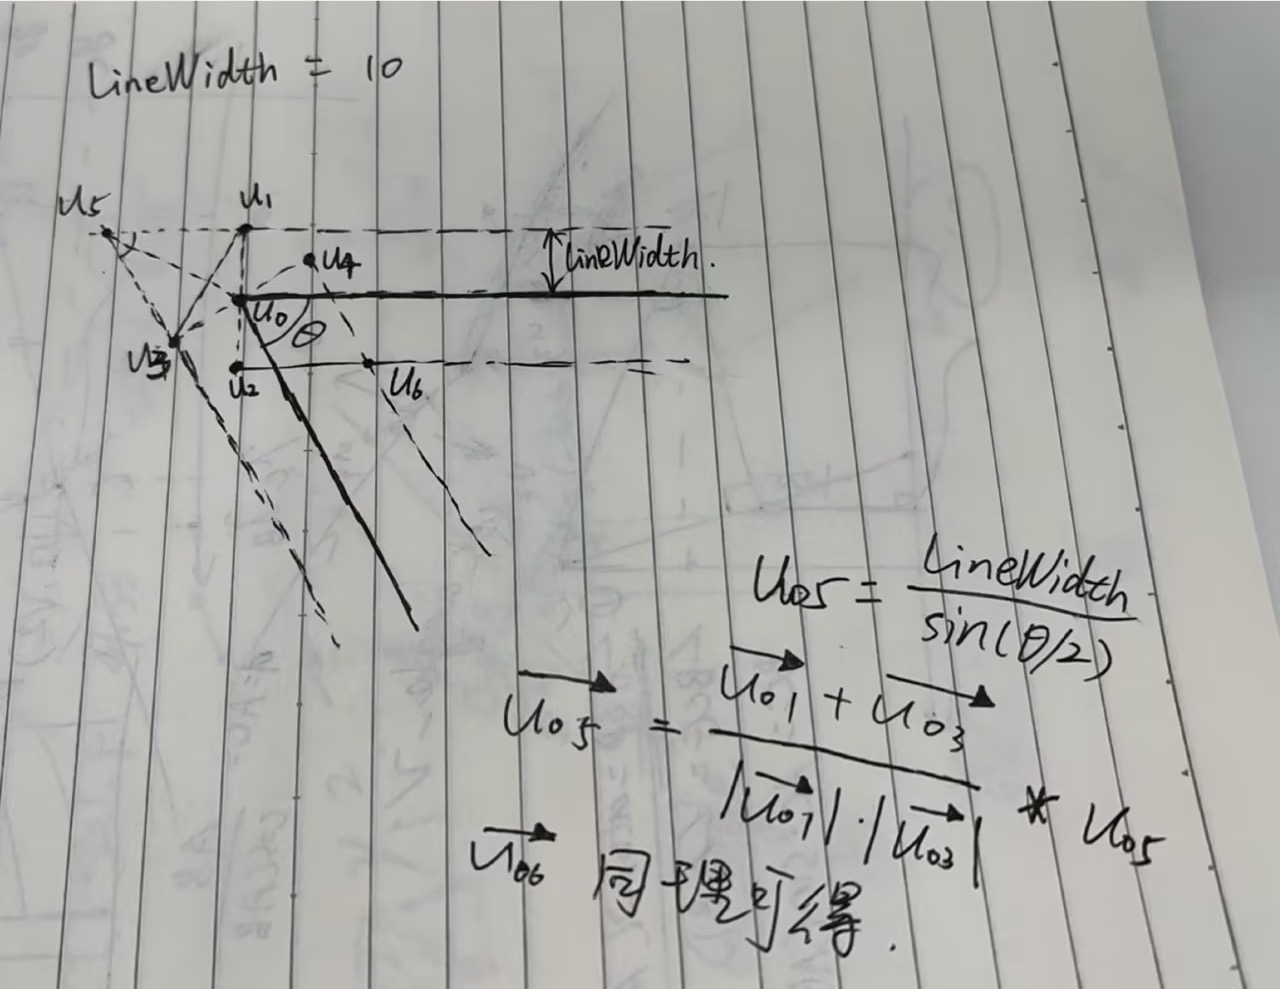 LineWidth = 10
u5
u1
u4
LineWidth.
u0
θ
u3
u2
u6
u05 = LineWidth / sin(θ/2)
u05 = u01 + u03 / |u01| · |u03| * u05
u06 同理可得.